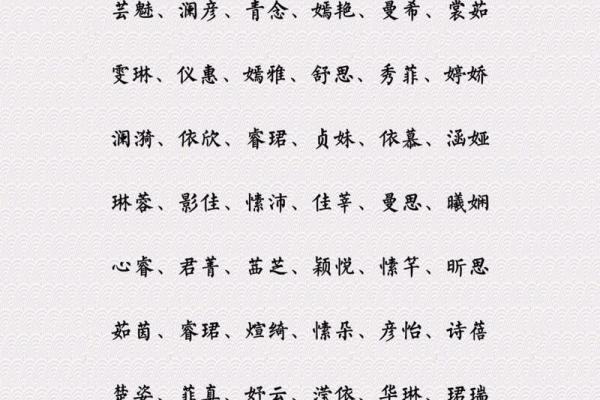 芸魅、澜彦、青念、嫣艳、曼希、裳茹
雯琳、仪惠、嫣雅、舒思、秀菲、婷娇
澜漪、依欣、睿珺、贞妹、依慕、涵娅
琳蓉、影佳、愫沛、佳莘、曼思、曦娴
心睿、君菁、茁芝、颖悦、愫竿、昕思
茹茵、睿珺、煊绮、愫朵、彦怡、诗蓓
楚姿、菲真、妤云、滢依、华琳、珺瑞